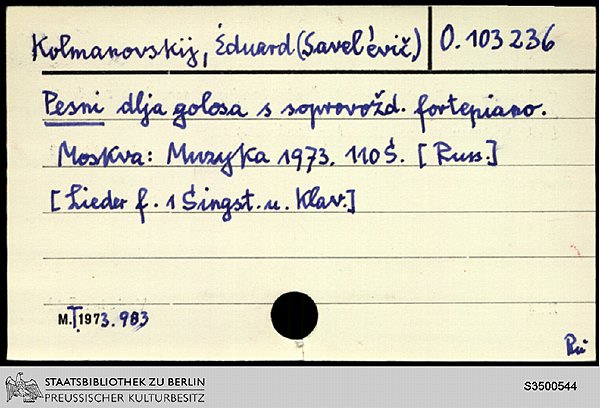 Kolmanovskij, Ėduard (Savel'evič,) O. 103 236
Pesni dlja golosa s soprovožd. fortepiano.
Moskva: Muzyka 1973. 110 S. [Russ.]
[Lieder f. 1 Singst. u. Klav.]
M.T. 1973.983
STAATSBIBLIOTHEK ZU BERLIN
PREUSSISCHER KULTURBESITZ
S3500544